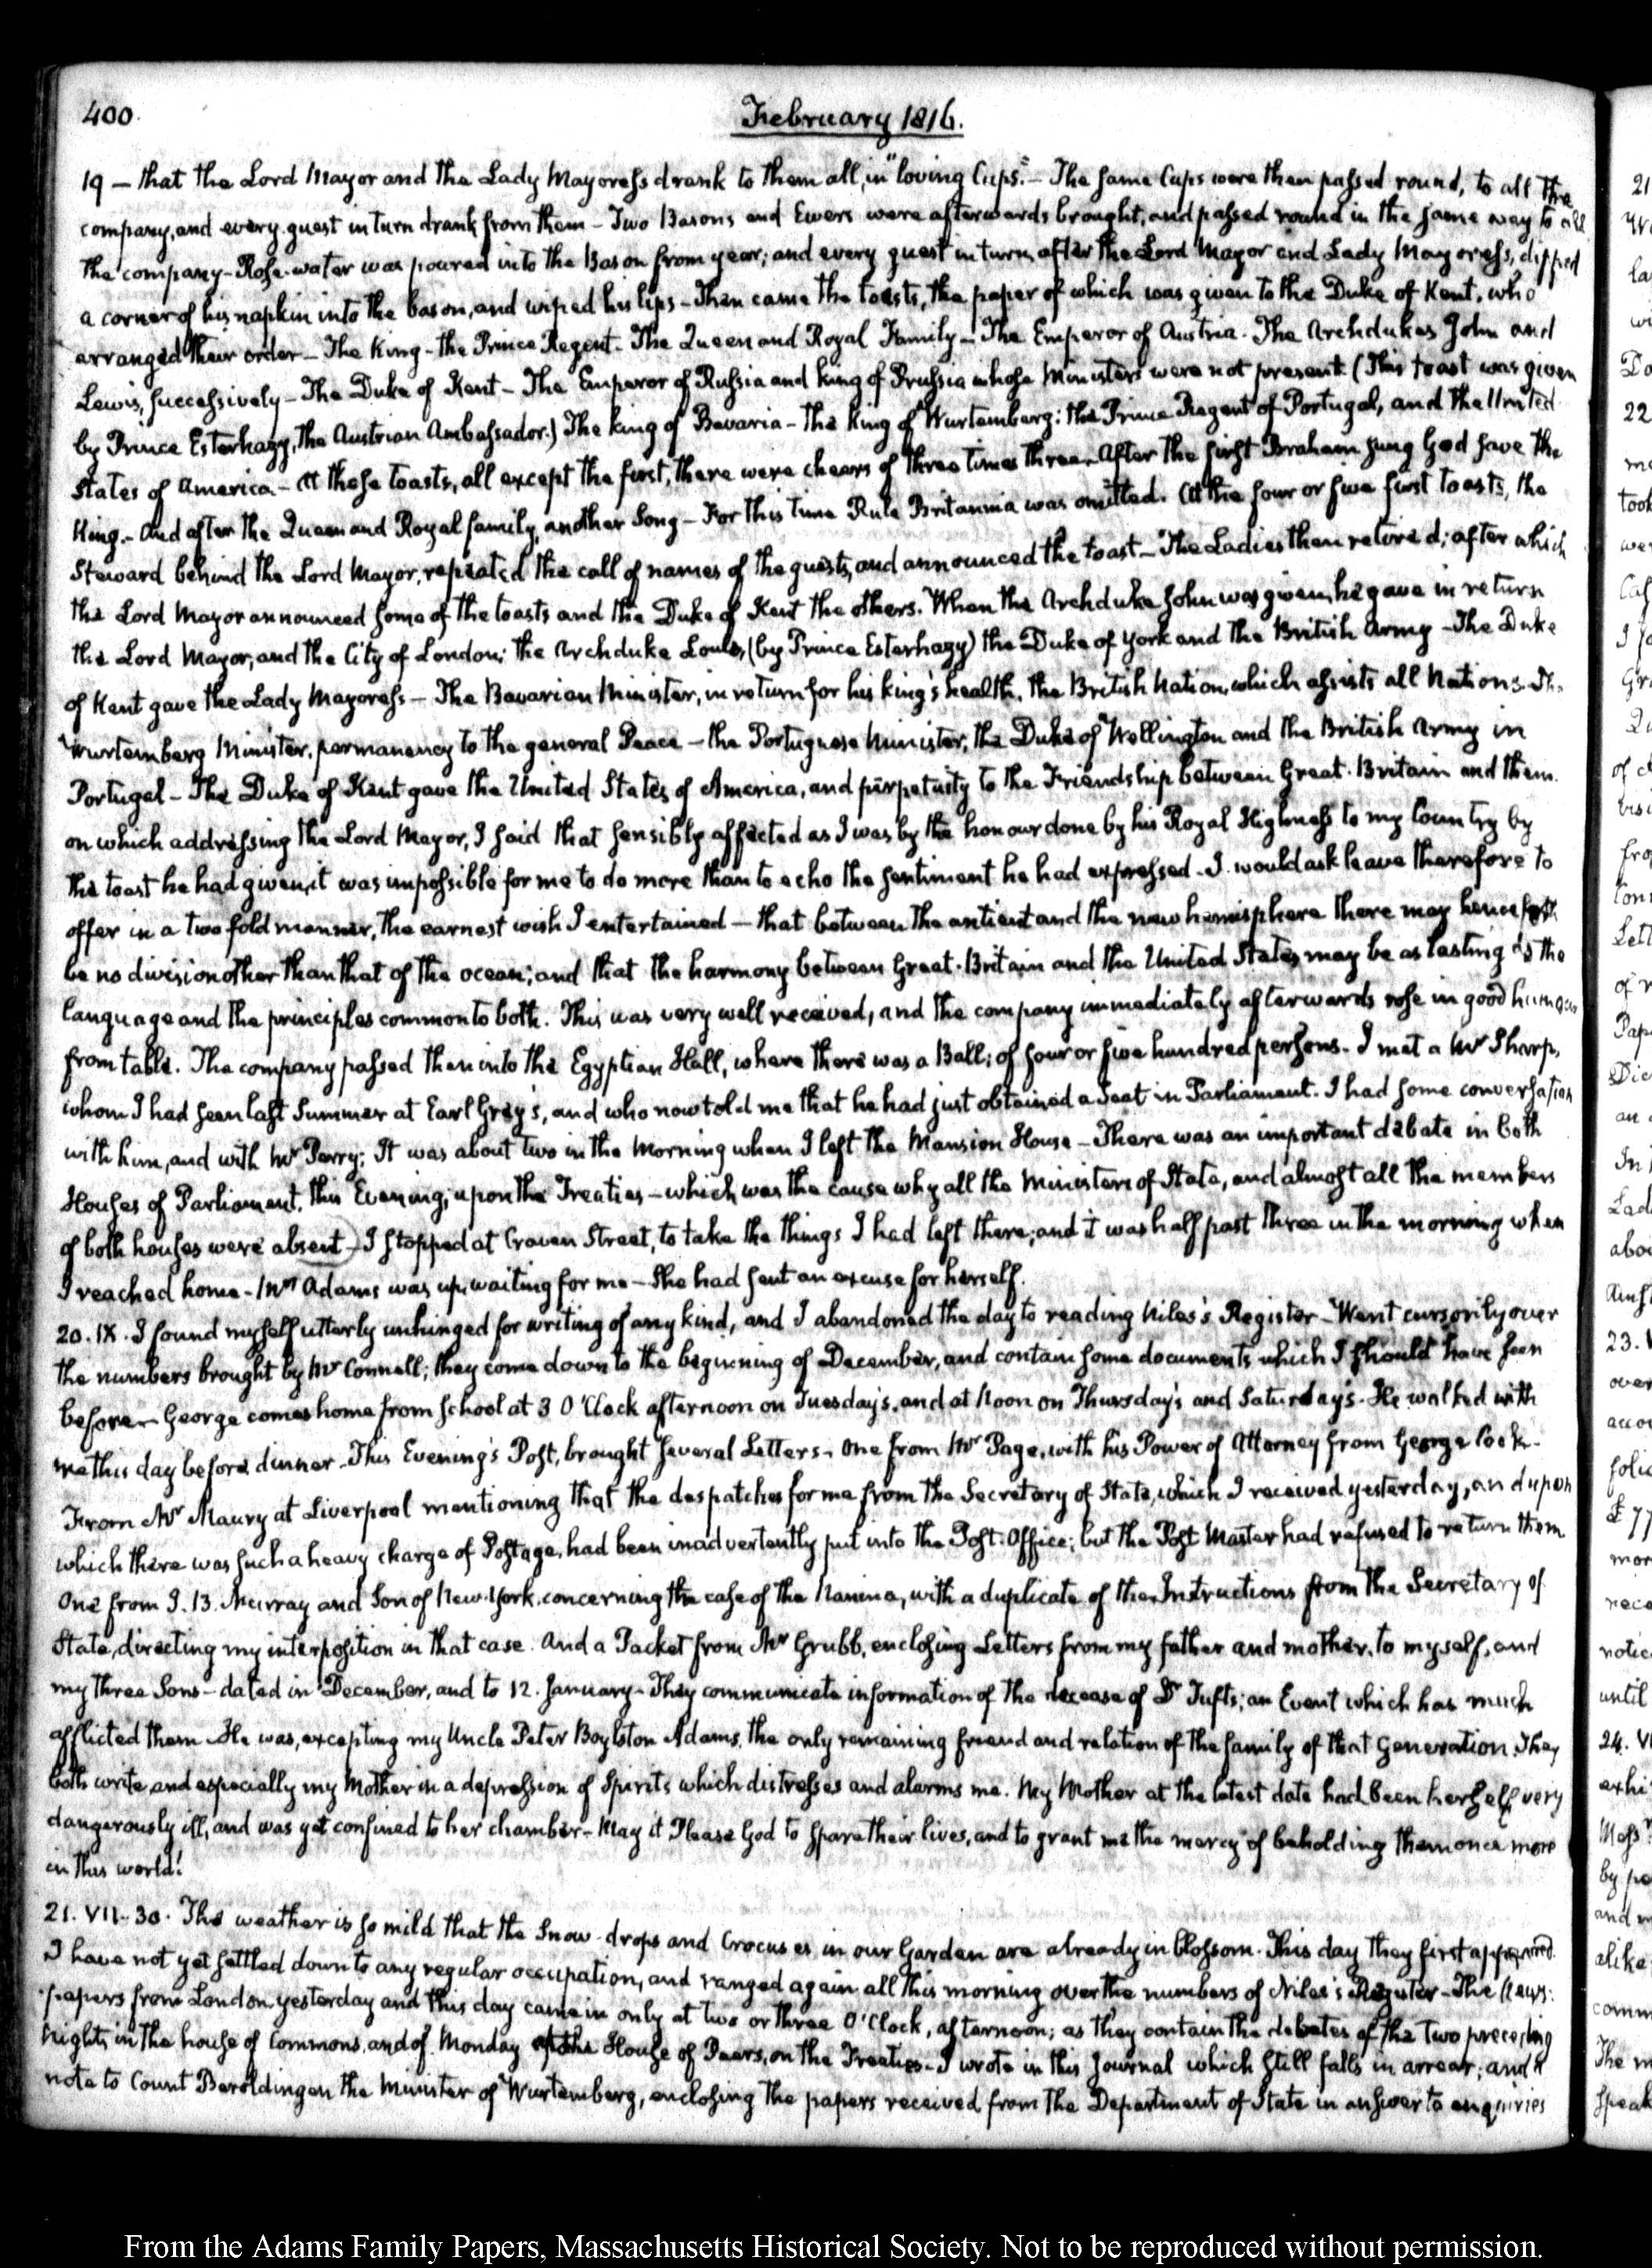 400.
February 1816.
19 — that the Lord Mayor and the Lady Mayoress drank to them all, in "loving Cups." — The same Cups were then passed round, to all the
company, and every guest in turn drank from them — Two Basons and Ewers were afterwards brought, and passed round in the same way to all
the company — Rose-water was poured into the Bason from year; and every guest in turn, after the Lord Mayor and Lady Mayoress, dipped
a corner of his napkin into the bason, and wiped his lips — Then came the toasts, the paper of which was given to the Duke of Kent, who
arranged their order — The King — the Prince Regent — The Queen and Royal Family — The Emperor of Austria. The Archdukes John and
Lewis, successively — The Duke of Kent — The Emperor of Russia and King of Prussia whose Ministers were not present (This toast was given
by Prince Esterhazy, the Austrian Ambassador.) The King of Bavaria — The King of Wurtemberg: the Prince Regent of Portugal, and the United
States of America — At these toasts, all except the first, there were cheers of three times three. After the first Braham sung God save the
King. — And after the Queen and Royal family, another Song — For this time Rule Britannia was omitted. At the four or five first toasts, the
Steward behind the Lord Mayor, repeated the call of names of the guests, and announced the toast — The Ladies then retired; after which
the Lord Mayor announced some of the toasts and the Duke of Kent the others. When the Archduke John was given, he gave in return
the Lord Mayor, and the City of London; the Archduke Louis, (by Prince Esterhazy) the Duke of York and the British Army — The Duke
of Kent gave the Lady Mayoress — The Bavarian Minister, in return for his king's health, the British Nation, which assists all Nations. The
Wurtemberg Minister, permanency to the general Peace — the Portuguese Minister, the Duke of Wellington and the British Army in
Portugal — The Duke of Kent gave the United States of America, and perpetuity to the Friendship between Great-Britain and them.
on which addressing the Lord Mayor, I said that sensibly affected as I was by the honour done by his Royal Highness to my Country by
the toast he had given, it was impossible for me to do more than to echo the sentiment he had expressed. I would ask leave therefore to
offer in a two fold manner, the earnest wish I entertained — that between the antient and the new hemisphere there may henceforth
be no division other than that of the ocean; and that the harmony between Great-Britain and the United States may be as lasting as the
language and the principles common to both. This was very well received, and the company immediately afterwards rose in good humour
from table. The company passed then into the Egyptian Hall, where there was a Ball; of four or five hundred persons. I met a Mr Sharp,
whom I had seen last Summer at Earl Grey's, and who now told me that he had just obtained a Seat in Parliament. I had some conversation
with him, and with Mr Perry: It was about two in the Morning when I left the Mansion House — There was an important debate in both
Houses of Parliament, this Evening, upon the Treaties — which was the cause why all the Ministers of State, and almost all the members
of both houses were absent — I stopped at Craven Street, to take the things I had left there; and it was half past three in the morning when
I reached home — Mrs Adams was up, waiting for me — She had sent an excuse for herself.
20. IX. I found myself utterly unhinged for writing of any kind, and I abandoned the day to reading Niles's Register — Went cursorily over
the numbers brought by Mr Connell; they come down to the beginning of December, and contain some documents which I should have seen
before — George comes home from School at 3 O'Clock afternoon on Tuesday's, and at Noon on Thursday's and Saturday's. He walked with
me this day before dinner — This Evening's Post, brought several Letters — One from Mr Page, with his Power of Attorney from George Cook —
From Mr Maury at Liverpool mentioning that the despatches for me from the Secretary of State, which I received yesterday, and upon
which there was such a heavy charge of Postage, had been inadvertently put into the Post-Office; but the Post Master had refused to return them
One from J. B. Murray and Son of New-York, concerning the case of the Nanina, with a duplicate of the Instructions from the Secretary of
State, directing my interposition in that case. And a Packet from Mr Grubb, enclosing Letters from my father and mother, to myself, and
my three Sons — dated in December, and to 12. January — They communicate information of the decease of Dr Tufts; an Event which has much
afflicted them. He was, excepting my Uncle Peter Boylston Adams, the only remaining friend and relation of the family of that Generation. They
both write and especially my Mother in a depression of Spirits which distresses and alarms me. My Mother at the latest date had been herself very
dangerously ill, and was yet confined to her chamber — May it Please God to spare their lives, and to grant me the mercy of beholding them once more
in this world!
21. VII-30. The weather is so mild that the Snow-drops and Crocuses in our Garden are already in blossom. This day they first appeared.
I have not yet settled down to any regular occupation, and ranged again all this morning over the numbers of Niles's Register — The News-
papers from London yesterday and this day came in only at two or three O'Clock, afternoon; as they contain the debates of the two preceding
Nights in the house of Commons, and of Monday at the House of Peers, on the Treaties — I wrote in this Journal which still falls in arrear; and a
note to Count Beroldingen the Minister of Wurtemberg, enclosing the papers received from the Department of State in answer to enquiries
From the Adams Family Papers, Massachusetts Historical Society. Not to be reproduced without permission.